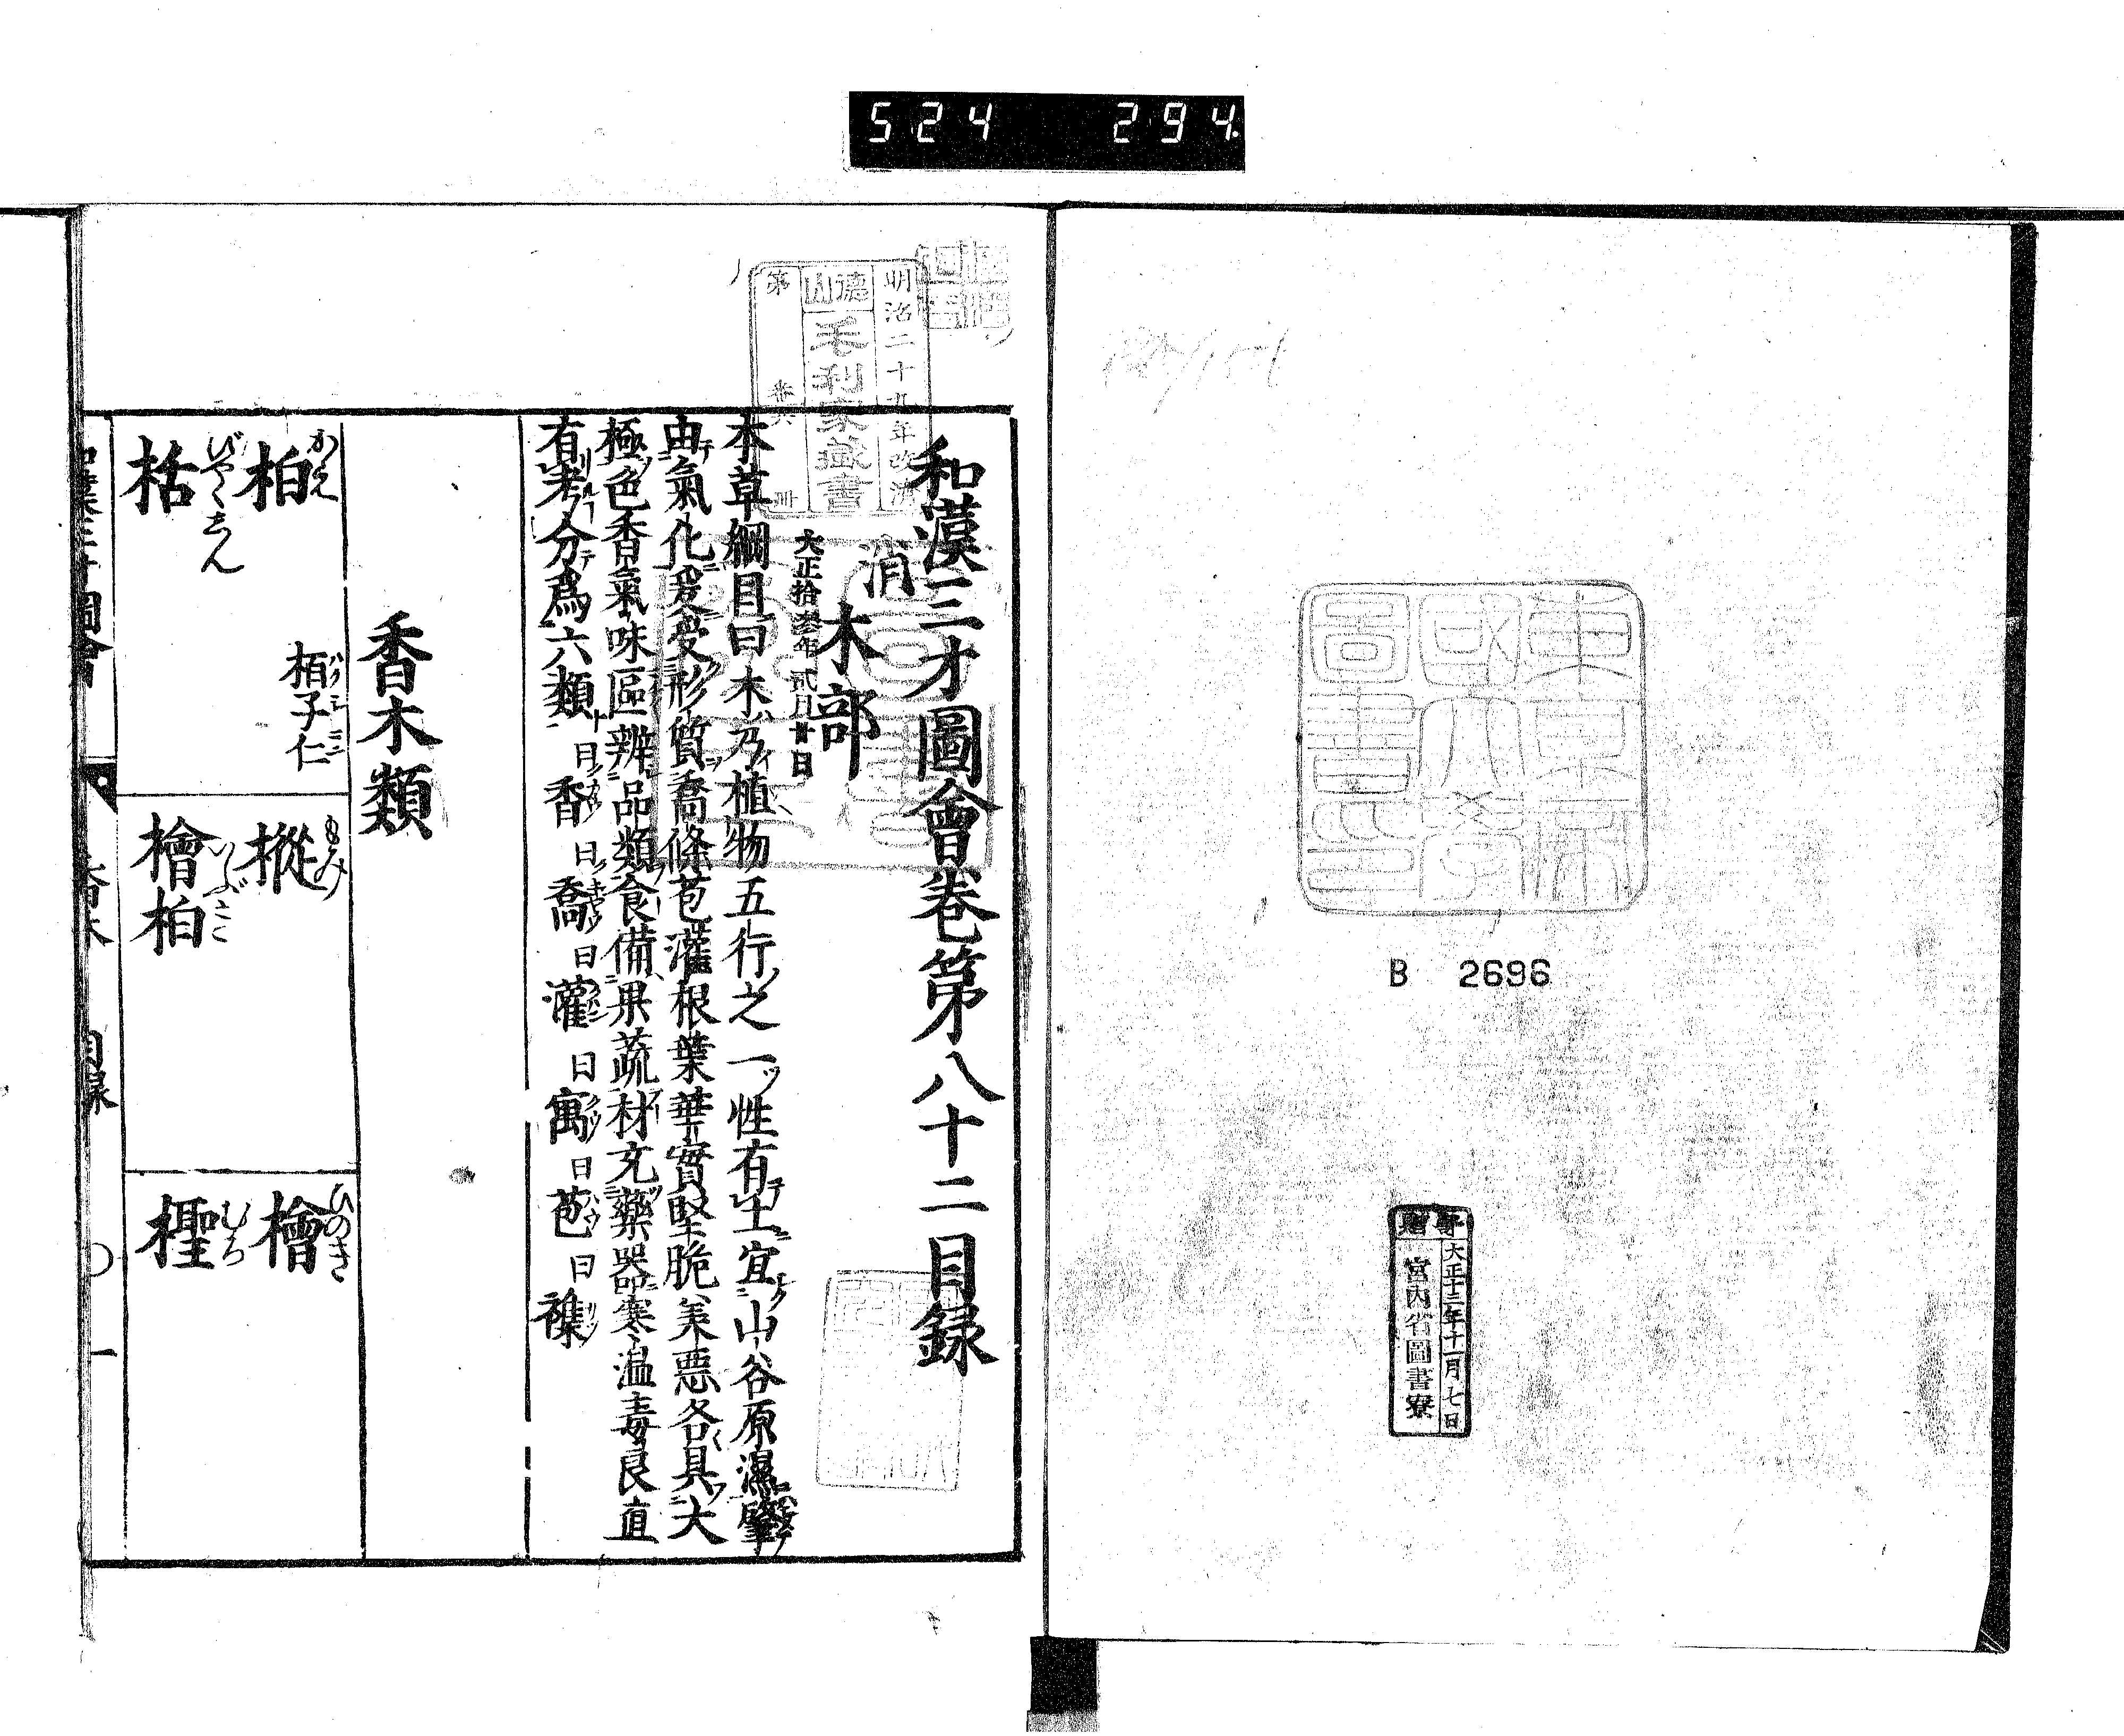 524 294
東京帝
國大學
圖書印
B 2696
寄贈
大正十三年十一月七日
宮内省圖書寮
明治二十九年改濟
德山
毛利家藏書
第 番共 冊
和漢三才圖會卷第八十二目録
消
木部
大正拾參年貳月廿日
本草綱目曰木乃植物五行之一性有土宜山谷原濕肇
由氣化爰受形質喬條苞灌根葉華實堅脆美惡各具大
極色香氣味區辨品類食備果蔬材充藥器寒温毒良直
有考分爲六類曰香曰喬曰灌曰寓曰苞曰襍
香木類
柏 かえ
栢子仁 ハクシニン
樅 もみ
檜 ひのき
栝 びやくしん
檜柏 いぶき
檉 むろ
香木 目録 〇 一